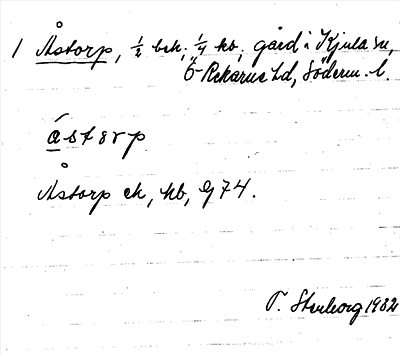 1 Åstorp, ½ bek, ¼ kb, gård i Kjula sn,
Ö-Rekarne hd, Söderm. l.
ástorp
Åstorp ek, kb, G 74.
T. Stenborg 1932